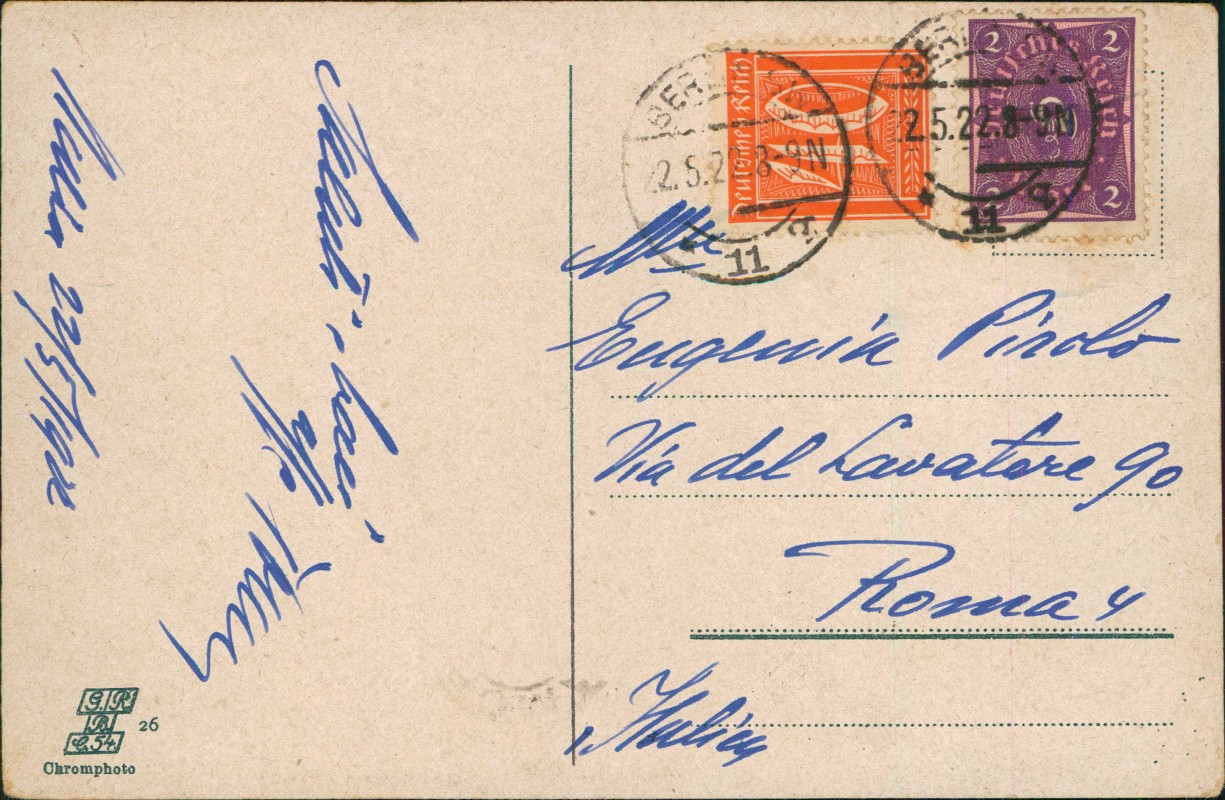 22/5/1922
Saluti, baci
BERLIN
22.5.22.8-9N
11
BERLIN
22.5.22.8-9N
11
Deutsches Reich
2 2
Deutsches Reich
2 2
Mlle
Eugenia Pirolo
Via del Lavatore 90
Roma 4
Italien
G.R.
B.
C.54.
26
Chromphoto